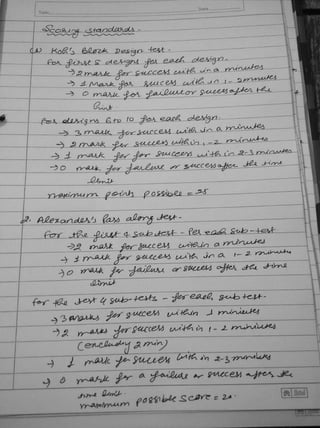 Scoring standards.
(1) Koh's Block Design test.
For first 5 designs for each design.
→ 2 mark for success with in a minutes
→ 1 Mark for success with in 1-2 minutes
→ 0 mark for failure or success after the
limit
For designs 6 to 10 for each design.
→ 3 mark for success with in a minutes
→ 2 mark for success within 1-2 minutes
→ 1 mark for for success with in 2-3 minutes
→ 0 mark for failure or success after the time
limit
maximum points possible = 25
2. Alexander's Pass along test.
For the first 4 subtest - Per each sub-test
→ 2 mark for success within a minutes
→ 1 mark for success with in a 1-2 minutes
→ 0 mark for failure or success after the time
limit
for the rest 4 sub-tests - for each sub test.
→ 3 marks for success within 1 minutes
→ 2 marks for success within 1-2 minutes
(excluding 2 min)
→ 1 mark for success with in 2-3 minutes
→ 0 mark for a failure or success after the
time limit
maximum possible score = 20